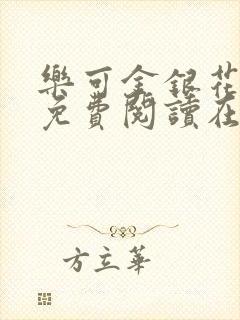 樂可金銀花
免費閱讀在
方立華